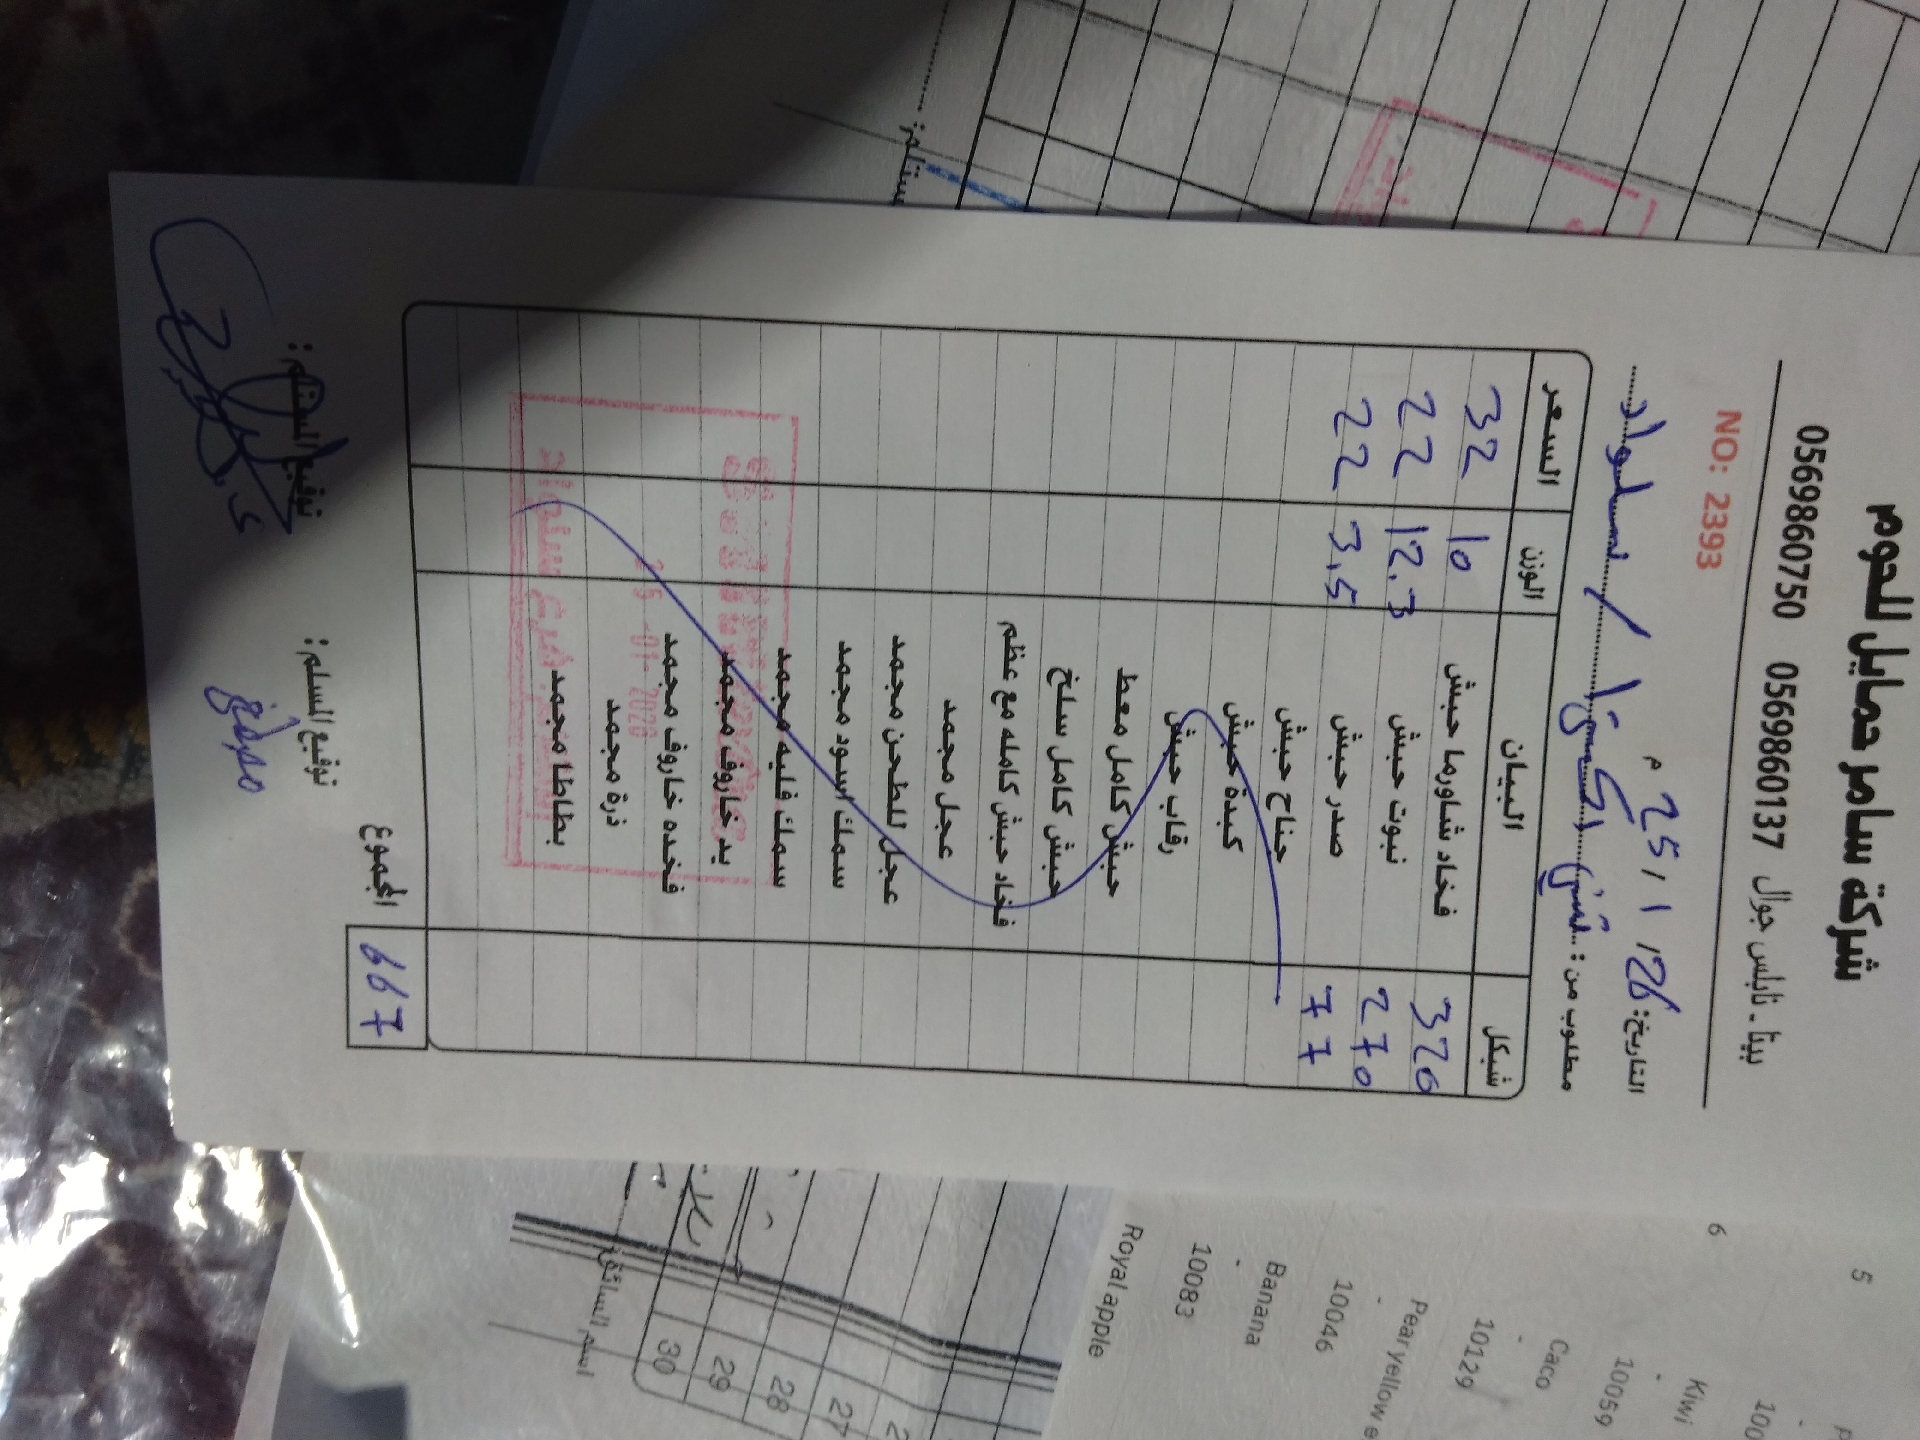 شركة سامر حمايل للحوم
بيتا - نابلس جوال 0569860137 0569860750
NO: 2393
التاريخ: 25 / 1 / 26 م
مطلوب من: / سلواد
شيكل البيان الوزن السعر
320 فخاد شاورما حبش 10 32
270 نبوت حبش 12.3 22
77 صدر حبش 3.5 22
جناح حبش
كبدة حبش
رقاب حبش
حبش كامل معط
حبش كامل سلخ
فخاد حبش كامله مع عظم
عجل مجمد
عجل للطحن مجمد
سمك اسود مجمد
سمك فليه مجمد
يد خاروف مجمد
فخده خاروف مجمد
ذرة مجمد
بطاطا مجمد
المجموع 667
توقيع السلم: توقيع المستلم:
25 -01- 2026
فرع سلواد
5
6
Kiwi
10059
Caco
10129
Pear yellow
10046
Banana
10083
Royal apple
27
28
29
30
اسم السائق: